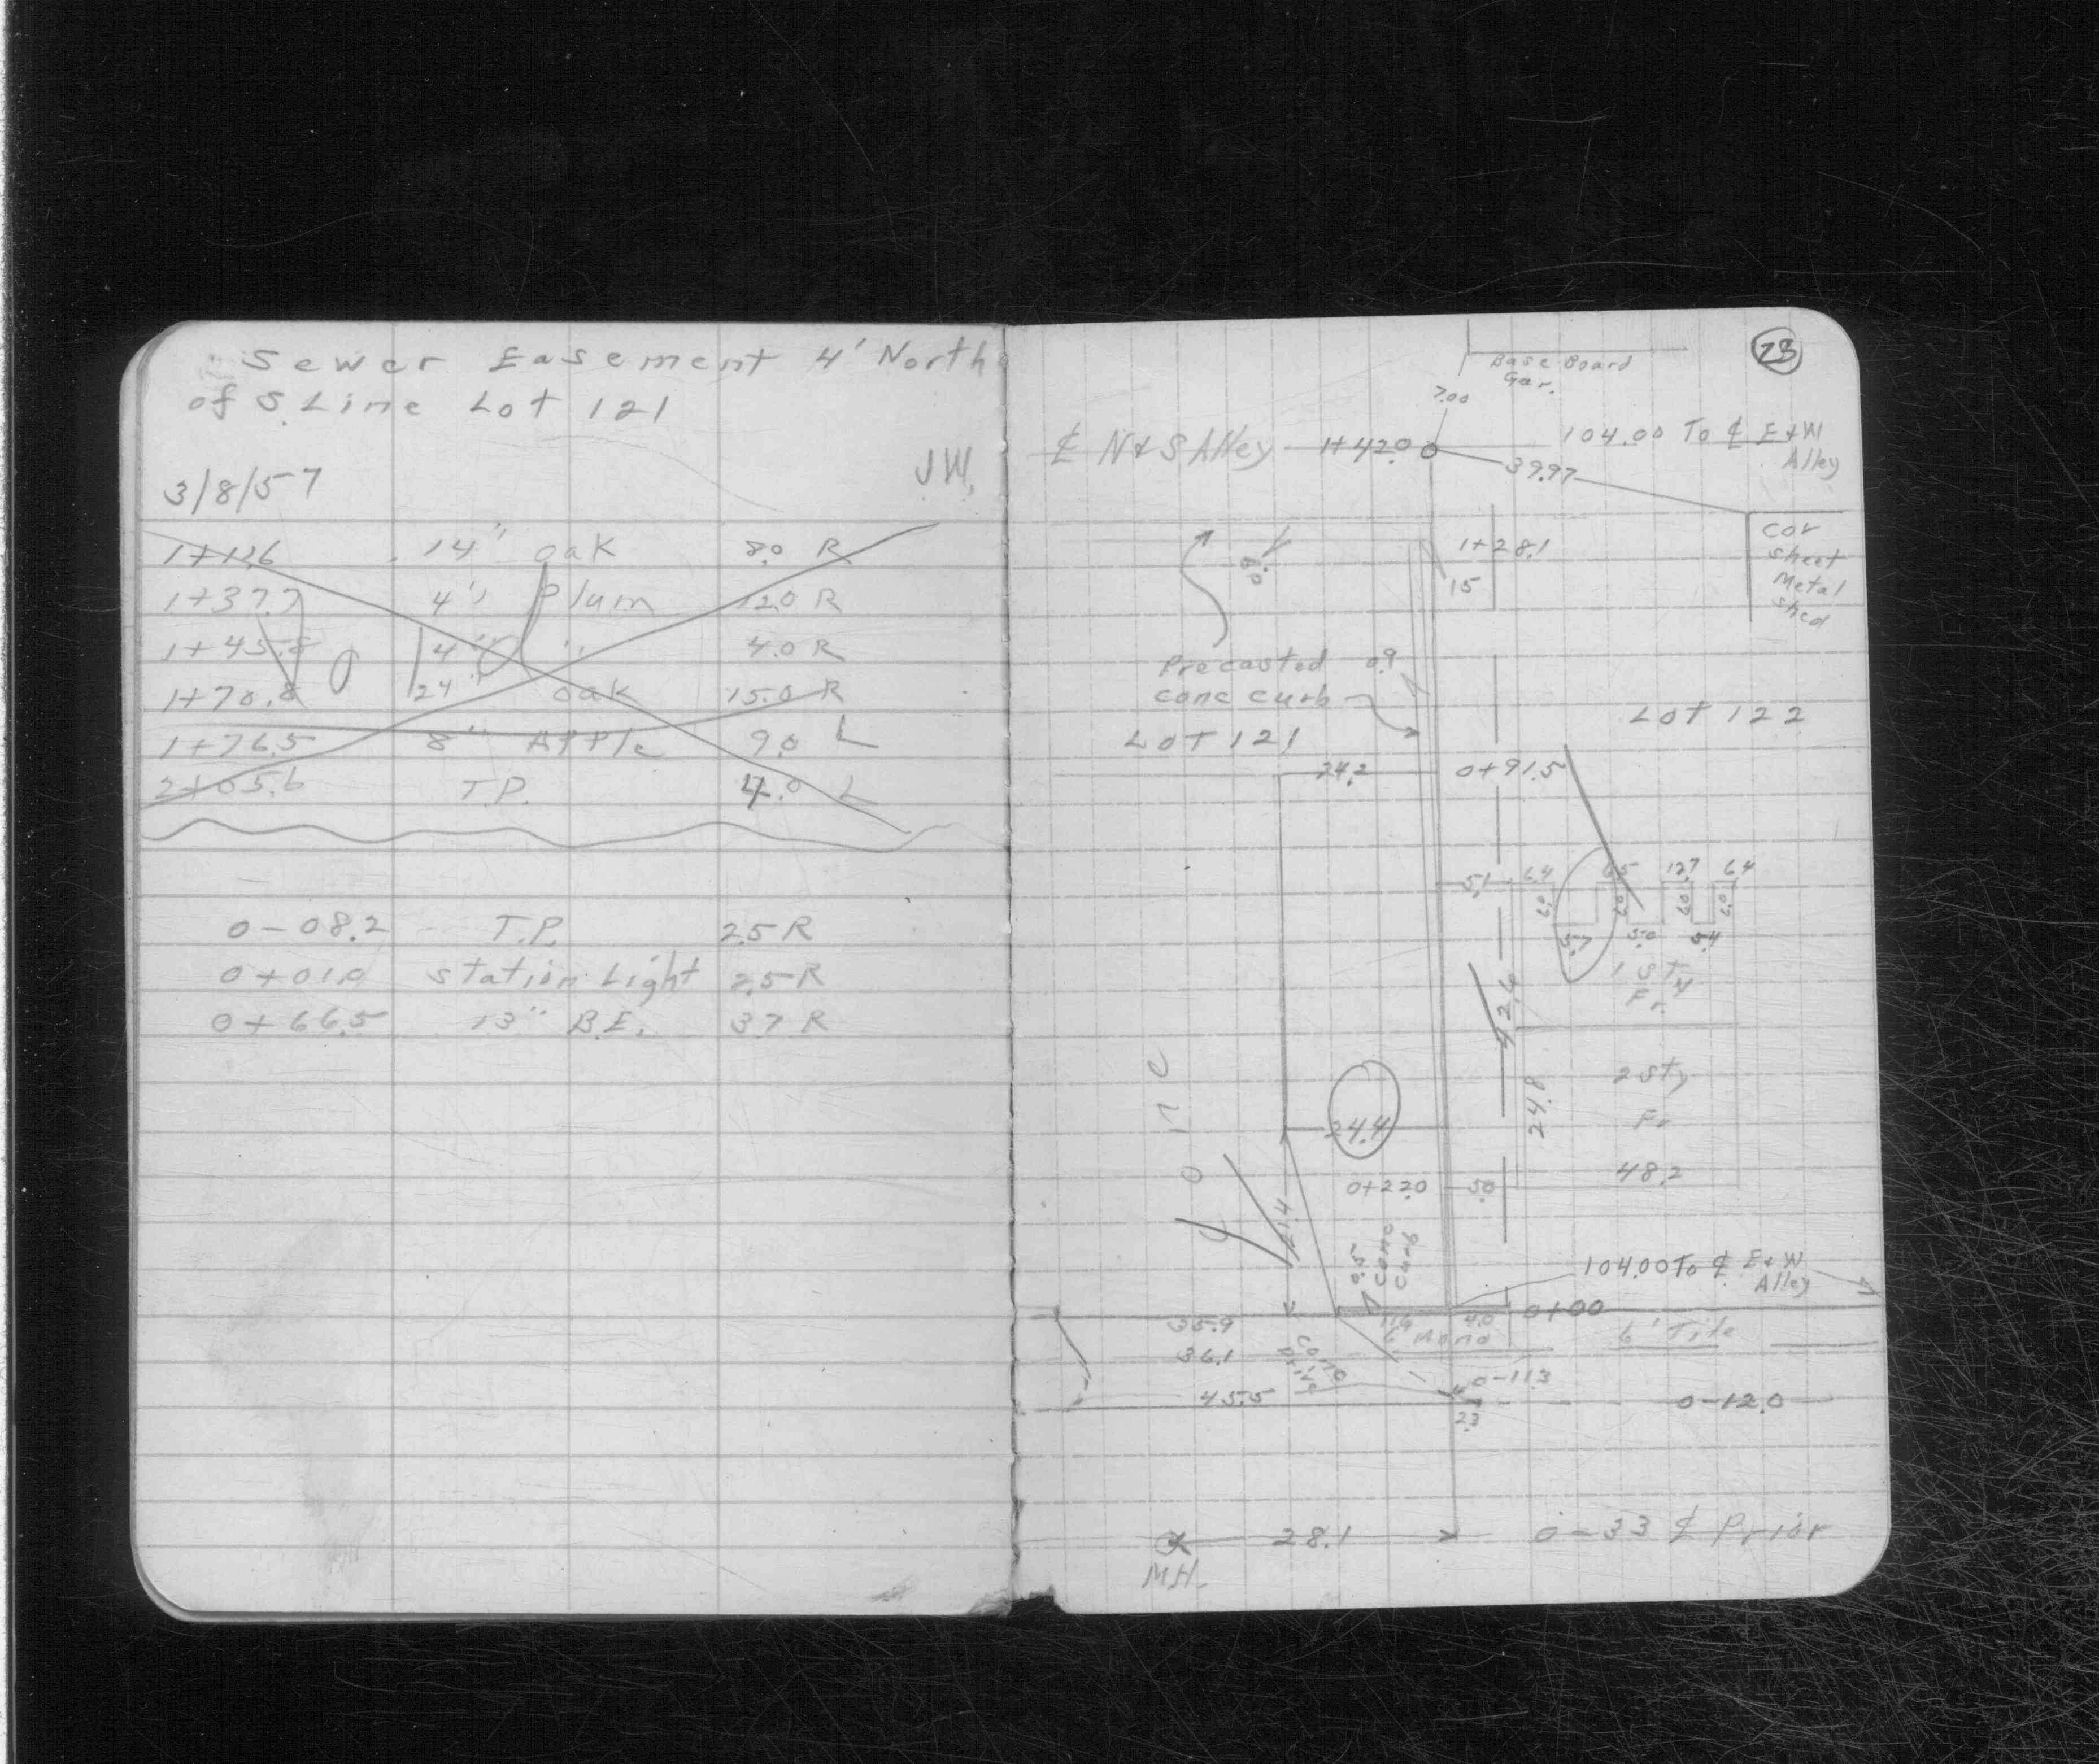 Sewer Easement 4' North
of S. Line Lot 121
J.W.
3/8/57
1+11.6 14" oak 8.0 R
1+37.7 4" Plum 12.0 R
1+45.8 4" " 4.0 R
1+70.8 24" oak 15.0 R
1+76.5 8" Apple 9.0 L
2+05.6 T.P. 4.0 L
VOID
0-08.2 T.P. 2.5 R
0+01.0 station Light 2.5 R
0+66.5 13" B.E. 3.7 R
73
Base Board
Gar.
7.00
℄ N+S Alley 1+42.0 104.00 To ℄ E+W
Alley
39.97
Cor
Sheet
Metal
Shed
1+28.1
15
0.8
Precasted 0.9
conc curb
Lot 121
Lot 122
24.2 0+91.5
5.1 6.4 6.5 12.7 6.4
6.0 6.0 6.0 6.0
5.7 5.0 5.4
1 Sty
Fr.
42.6
2 Sty
24.8
Fr
Conc
24.4
0+22.0 5.0 48.2
21.4
0.5
Conc
Curb
104.00 To ℄ E+W
Alley
0+00
35.9 11.6 4.0
6' Mono 6' Tile
36.1
Conc
Drive
0-11.3
45.5 0-12.0
2.3
28.1 0-33 ℄ Prior
M.H.